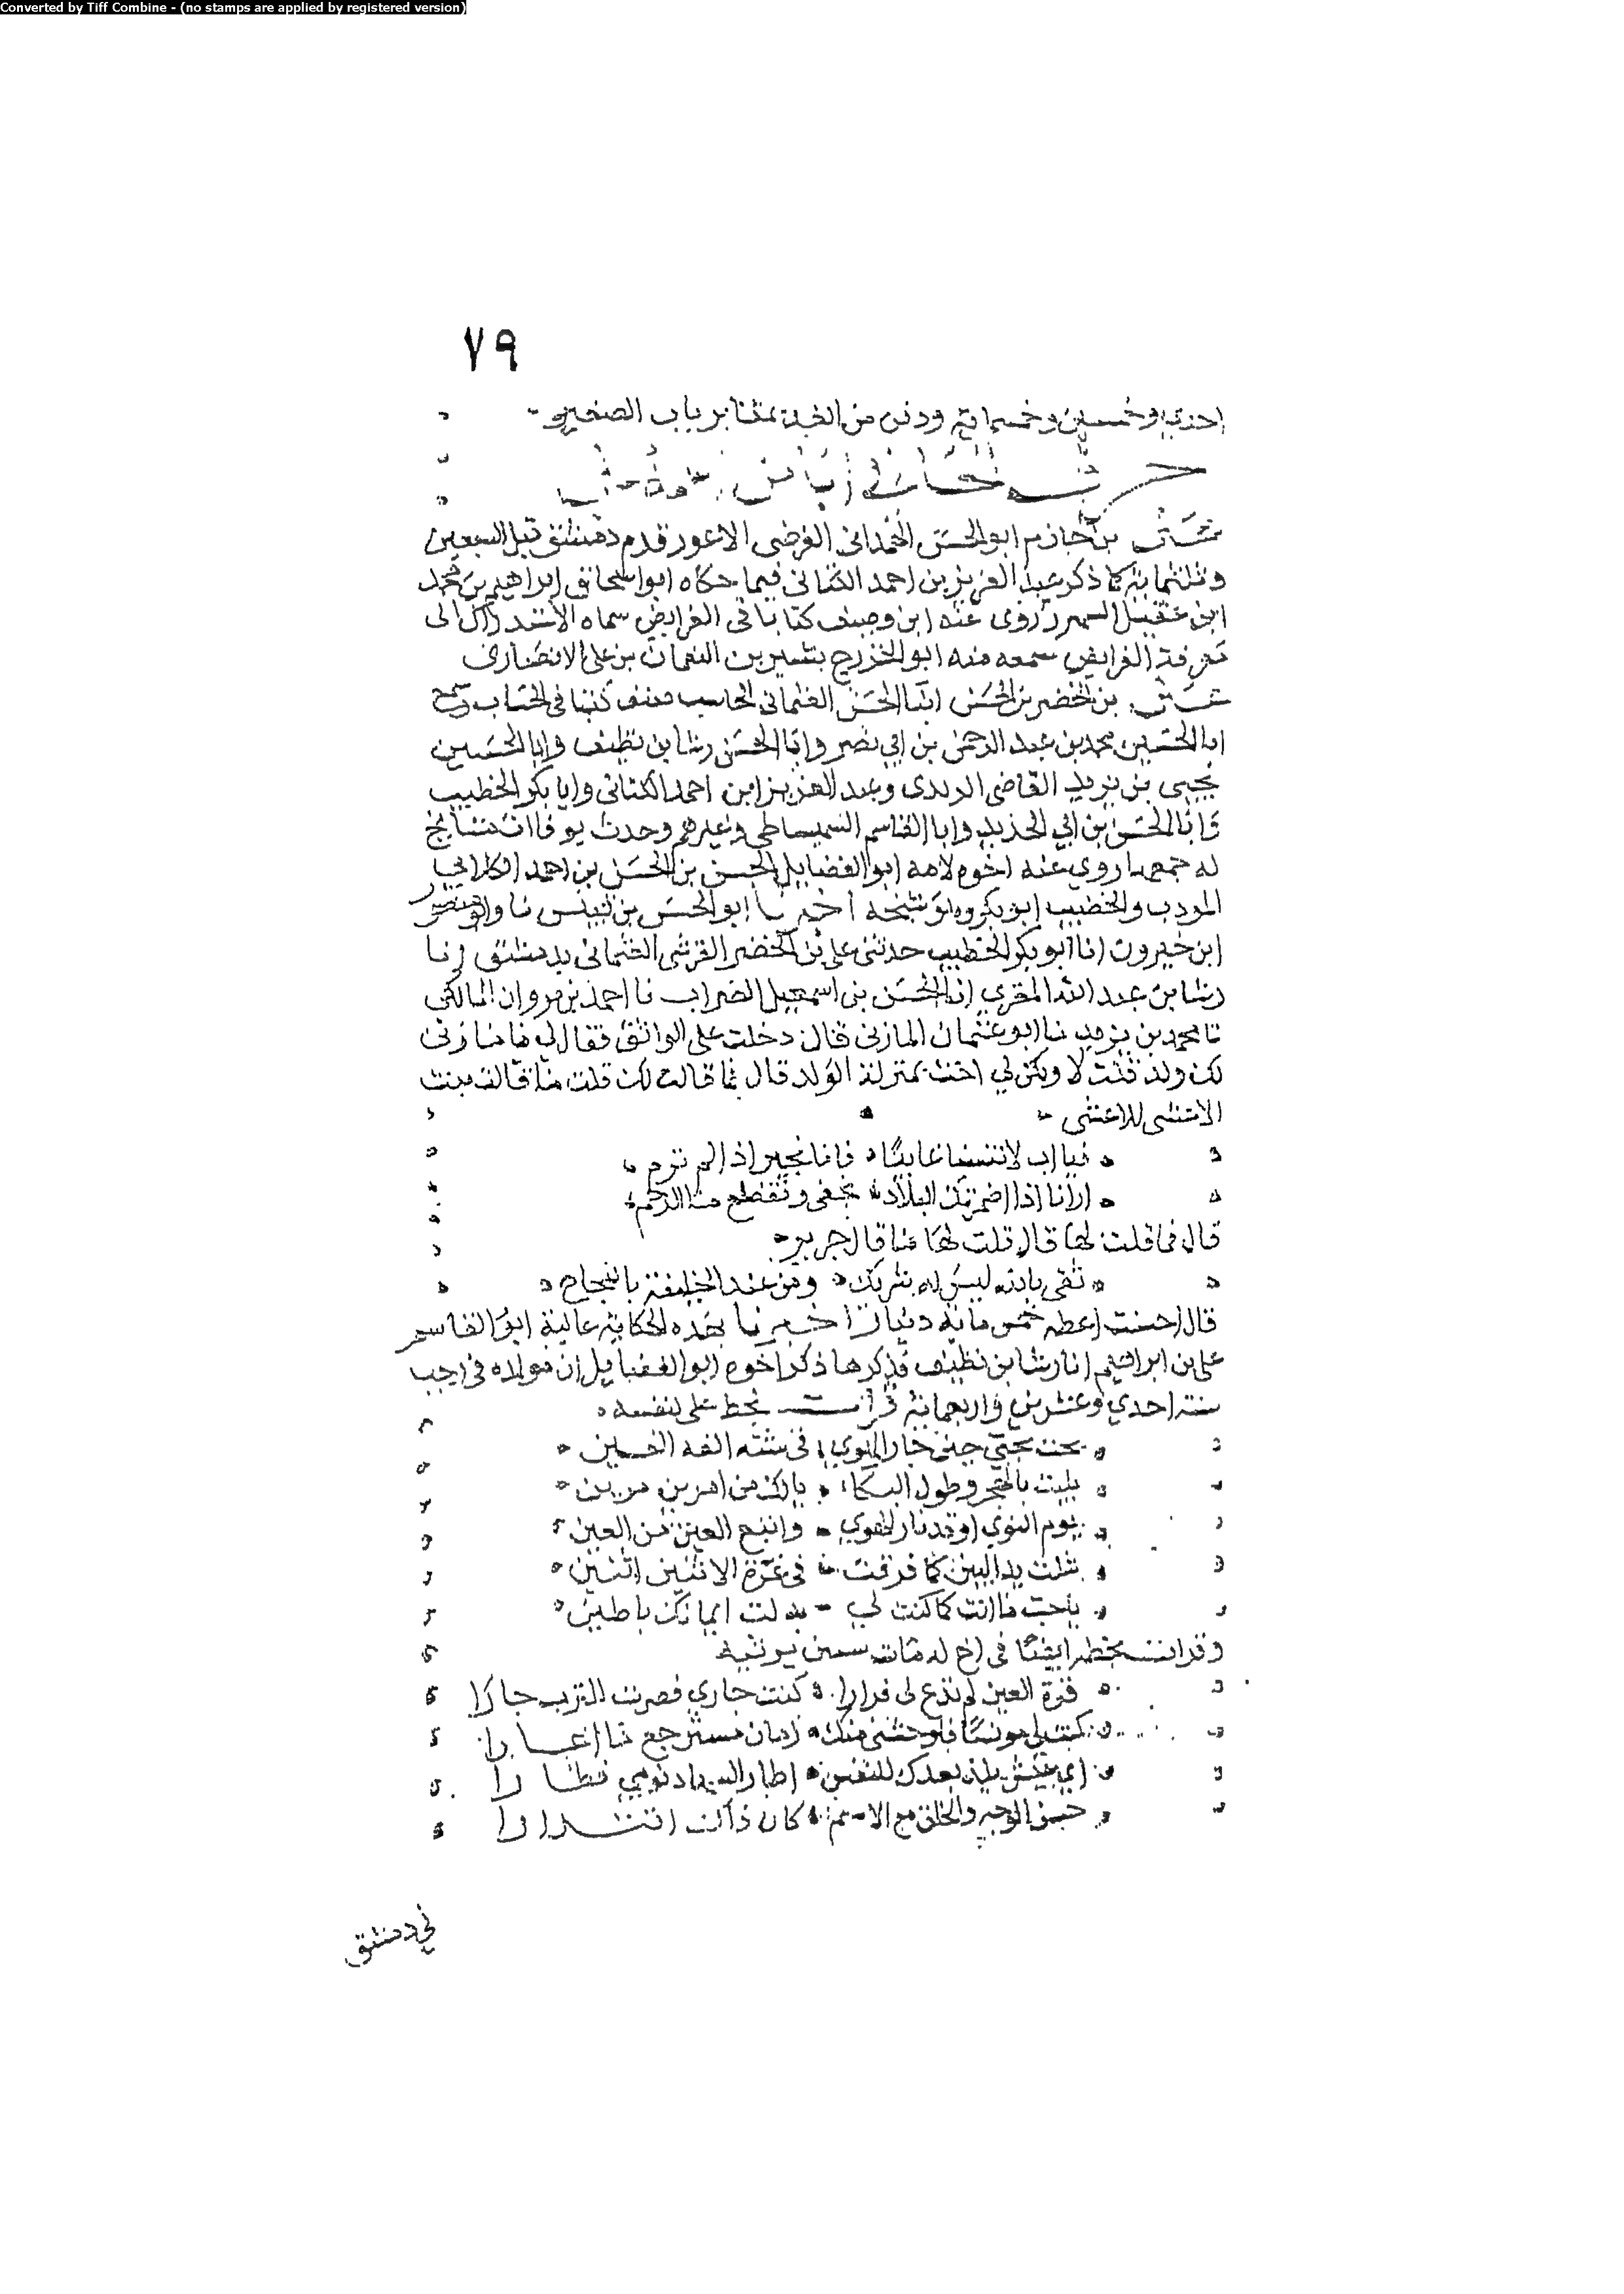 Converted by Tiff Combine - (no stamps are applied by registered version)
٧٩
احدى وخمسين وخمسمائة ودفن من الغد بمقابر باب الصغير
حرف الخاء في
علي بن حازم ابو الحسن الهمداني الفرضي الاعور قدم دمشق قبل السبعين
وثلثمائة كما ذكر عبد العزيز بن احمد الكتاني فيما حكاه ابو اسحاق ابراهيم بن محمد
ابن عقيل روى عنه ابن وصيف كتابا في الفرايض سماه الاستدراك الى
معرفة الفرايض سمعه منه ابو الخزرج بشير بن النعمان بن علي الانصاري
علي بن الخضر بن الحسن ابو الحسن العثماني الحاسب صنف كتبا في الحساب وسمع
ابا الحسين محمد بن عبد الرحمن بن ابي نصر وابا الحسن رشا بن نظيف وابا الحسين
يحيى بن يزيد القاضي الزيدي وعبد العزيز ابن احمد الكتاني وابا بكر الخطيب
وابا الحسن بن ابي الحديد وابا القاسم السميساطي وغيرهم وحدث مشايخ
له جمعها روى عنه اخوه لامه ابو الفضايل الحسن بن الحسن بن احمد الكلابي
المودب والخطيب ابو بكر وهو شيخه اخبرنا ابو الحسن بن قبيس نا وابو منصور
ابن خيرون انا ابو بكر الخطيب حدثني علي بن الخضر القرشي العثماني بدمشق انا
رشا بن عبد الله المقري انا الحسن بن اسمعيل الضراب نا احمد بن مروان المالكي
نا محمد بن يزيد نا ابو عثمان المازني قال دخلت على الواثق فقال لي يا مازني
لك ولد قلت لا ولكن لي اخت بمنزلة الولد قال فما قالت لك قلت ما قالت بنت
الاعشى للاعشى
فيا اب لا تنسنا غايبا فانا بخير اذا لم ترم
ارانا اذا اضمرتك البلاد نجفى وتقطع منا الرحم
قال فما قلت لها قال قلت لها ما قال جرير
ثقي بالله ليس له شريك ومن عند الخليفة بالنجاح
قال احسنت اعطه خمس مائة دينار اخبرنا بهذه الحكاية عالية ابو القاسم
علي بن ابراهيم انا رشا بن نظيف فذكرها ذكر اخوه ابو الفضايل ان مولده في رجب
سنة احدى وعشرين واربعمائة قرات بخط علي لنفسه
بليت بالهجر وطول البكاء يا لك من امرين مرين
يوم النوى اوقد نار الهوى وانبع العين من العين
شلت يد البين كما فرقت في غرة الاثنين اثنين
يا حب ما انت كما كنت لي بدلت
وقرات بخطه ايضا في اخ له مات يرثيه
قرة العين لم تدع لي قرارا كنت جاري فصرت للترب جارا
كنت لي مونسا فاوحشني منك زمان مسترجع ما اعارا
اي عيش يلذ بعدك للنفس اطار السهاد نومي فطارا
حسن الوجه والخلق مع الاسم كان ذاك اقتدارا
في دمشق